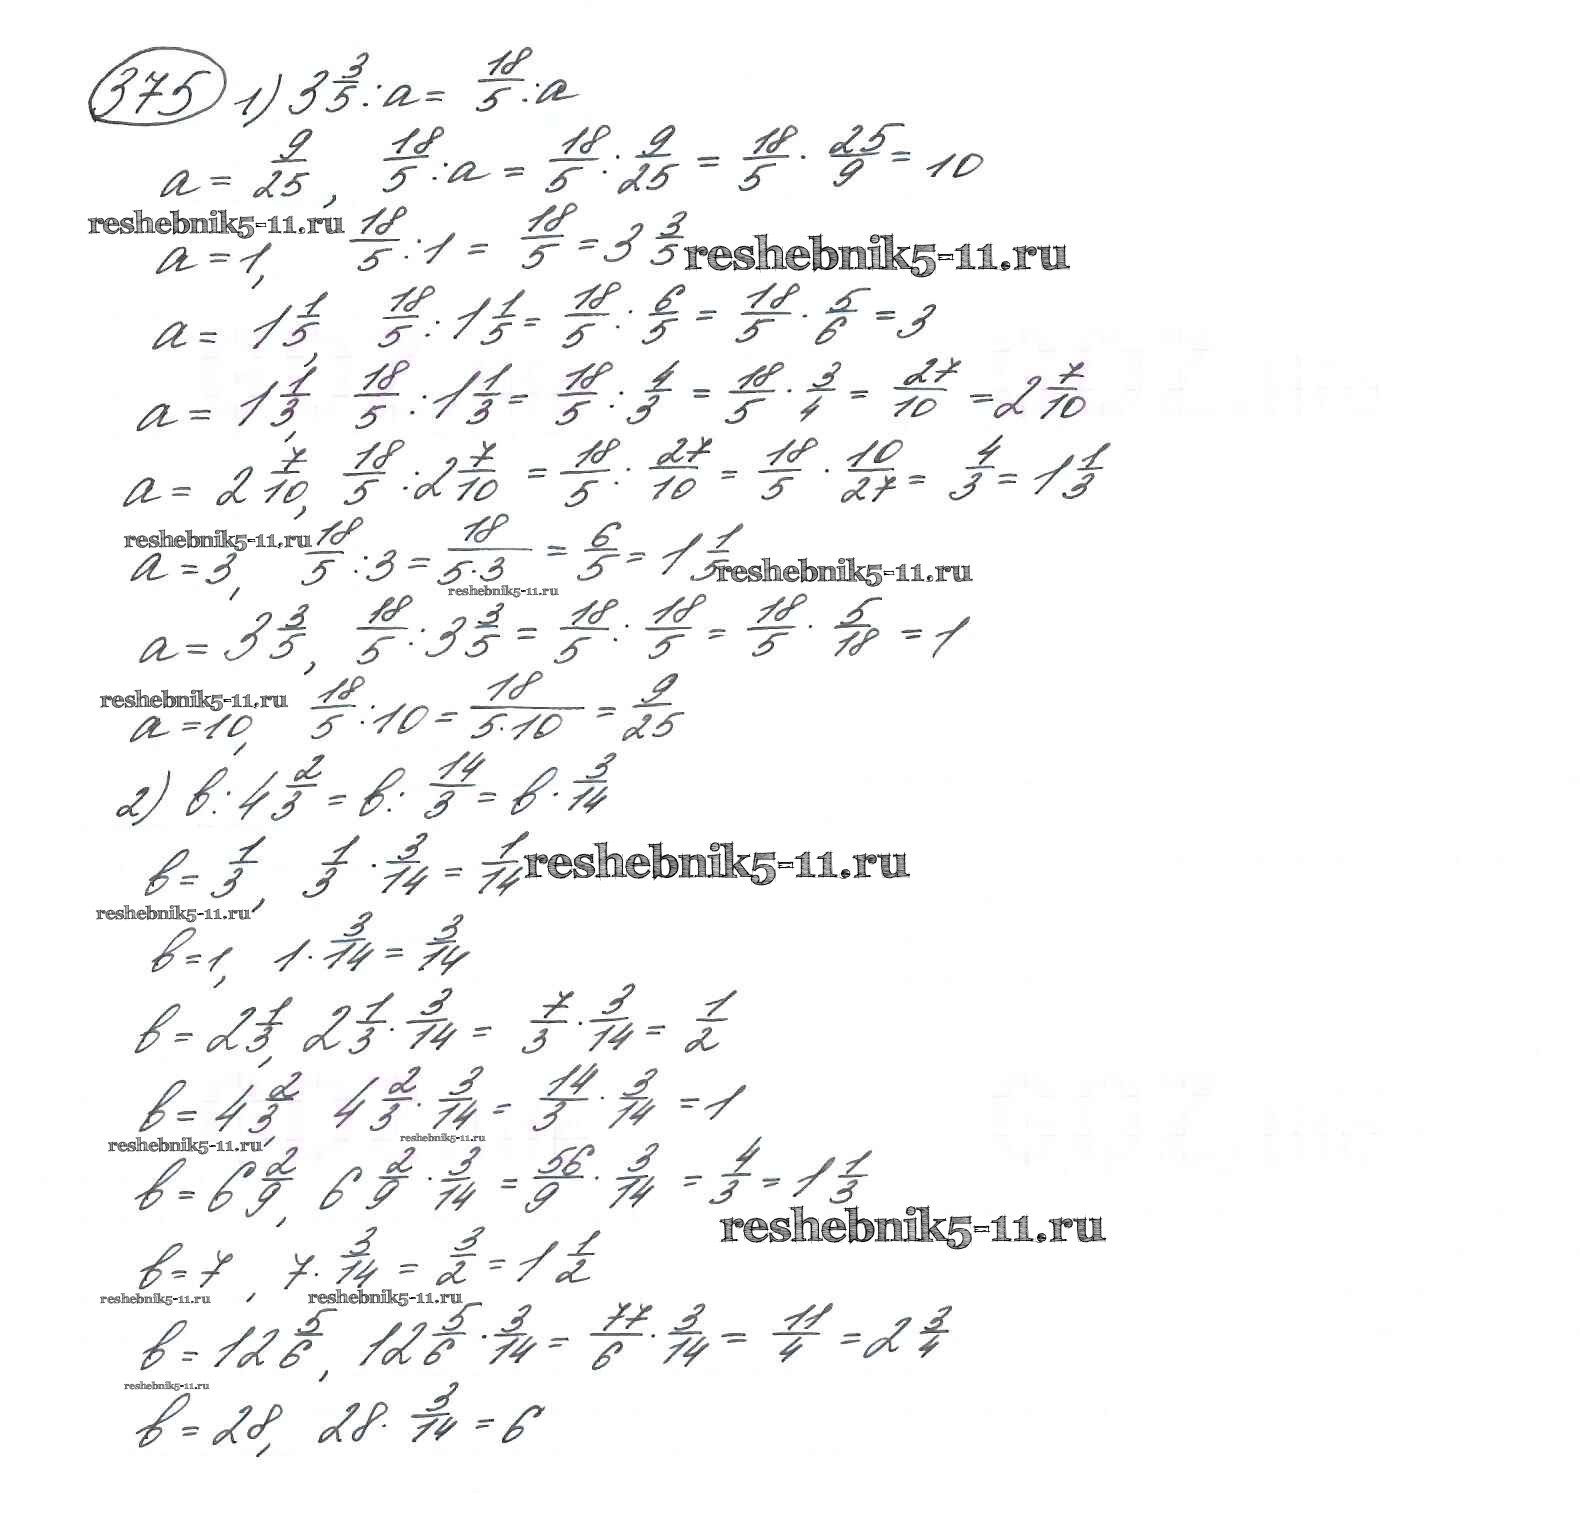 375 1) 3 3/5 : a = 18/5 : a
a = 9/25, 18/5 : a = 18/5 : 9/25 = 18/5 · 25/9 = 10
reshebnik5-11.ru
a = 1, 18/5 : 1 = 18/5 = 3 3/5 reshebnik5-11.ru
a = 1 1/5, 18/5 : 1 1/5 = 18/5 : 6/5 = 18/5 · 5/6 = 3
a = 1 1/3, 18/5 : 1 1/3 = 18/5 : 4/3 = 18/5 · 3/4 = 27/10 = 2 7/10
a = 2 7/10, 18/5 : 2 7/10 = 18/5 : 27/10 = 18/5 · 10/27 = 4/3 = 1 1/3
reshebnik5-11.ru
a = 3, 18/5 : 3 = 18/(5·3) = 6/5 = 1 1/5 reshebnik5-11.ru
reshebnik5-11.ru
a = 3 3/5, 18/5 : 3 3/5 = 18/5 : 18/5 = 18/5 · 5/18 = 1
reshebnik5-11.ru
a = 10, 18/5 : 10 = 18/(5·10) = 9/25
2) в : 4 2/3 = в : 14/3 = в · 3/14
в = 1/3, 1/3 · 3/14 = 1/14 reshebnik5-11.ru
reshebnik5-11.ru
в = 1, 1 · 3/14 = 3/14
в = 2 1/3, 2 1/3 · 3/14 = 7/3 · 3/14 = 1/2
в = 4 2/3, 4 2/3 · 3/14 = 14/3 · 3/14 = 1
reshebnik5-11.ru reshebnik5-11.ru
в = 6 2/9, 6 2/9 · 3/14 = 56/9 · 3/14 = 4/3 = 1 1/3
reshebnik5-11.ru
в = 7, 7 · 3/14 = 3/2 = 1 1/2
reshebnik5-11.ru reshebnik5-11.ru
в = 12 5/6, 12 5/6 · 3/14 = 77/6 · 3/14 = 11/4 = 2 3/4
reshebnik5-11.ru
в = 28, 28 · 3/14 = 6